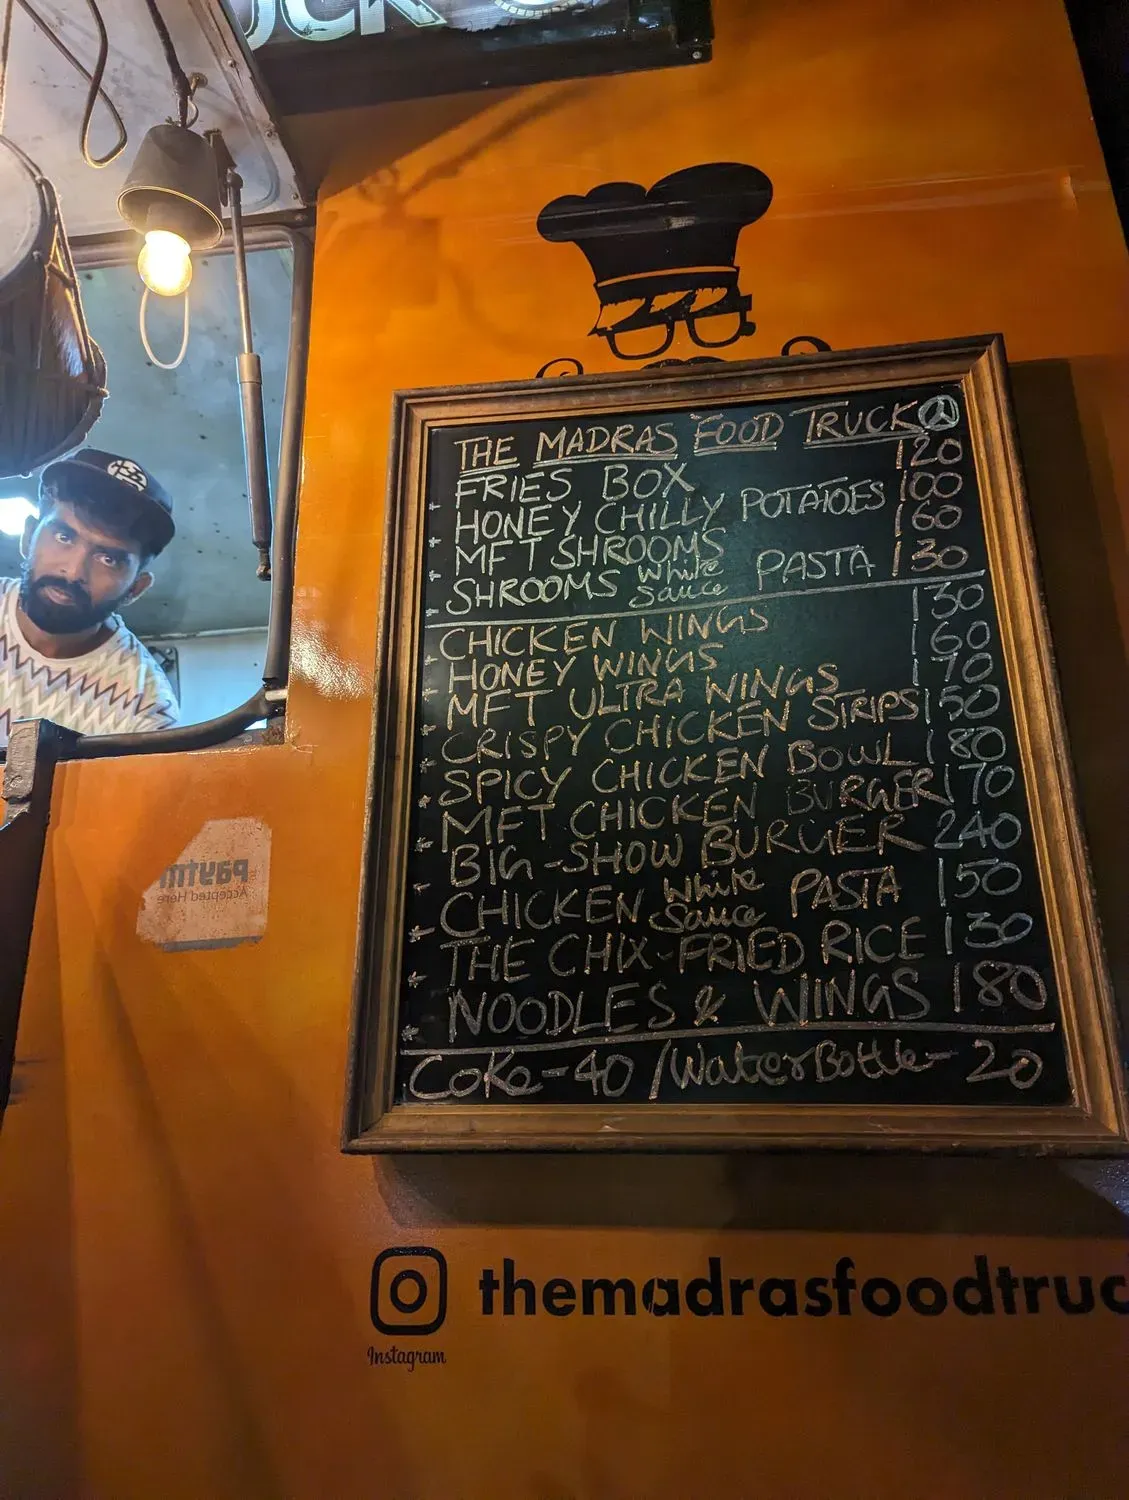 UCK
THE MADRAS FOOD TRUCK
FRIES BOX 120
HONEY CHILLY POTATOES 100
MFT SHROOMS 160
SHROOMS White Sauce PASTA 130
CHICKEN WINGS 130
HONEY WINGS 160
MFT ULTRA WINGS 170
CRISPY CHICKEN STRIPS 150
SPICY CHICKEN BOWL 180
MFT CHICKEN BURGER 170
BIG-SHOW BURGER 240
CHICKEN White Sauce PASTA 150
THE CHIX-FRIED RICE 130
NOODLES & WINGS 180
Coke-40 / Water Bottle- 20
paytm
Accepted Here
themadrasfoodtruc
Instagram